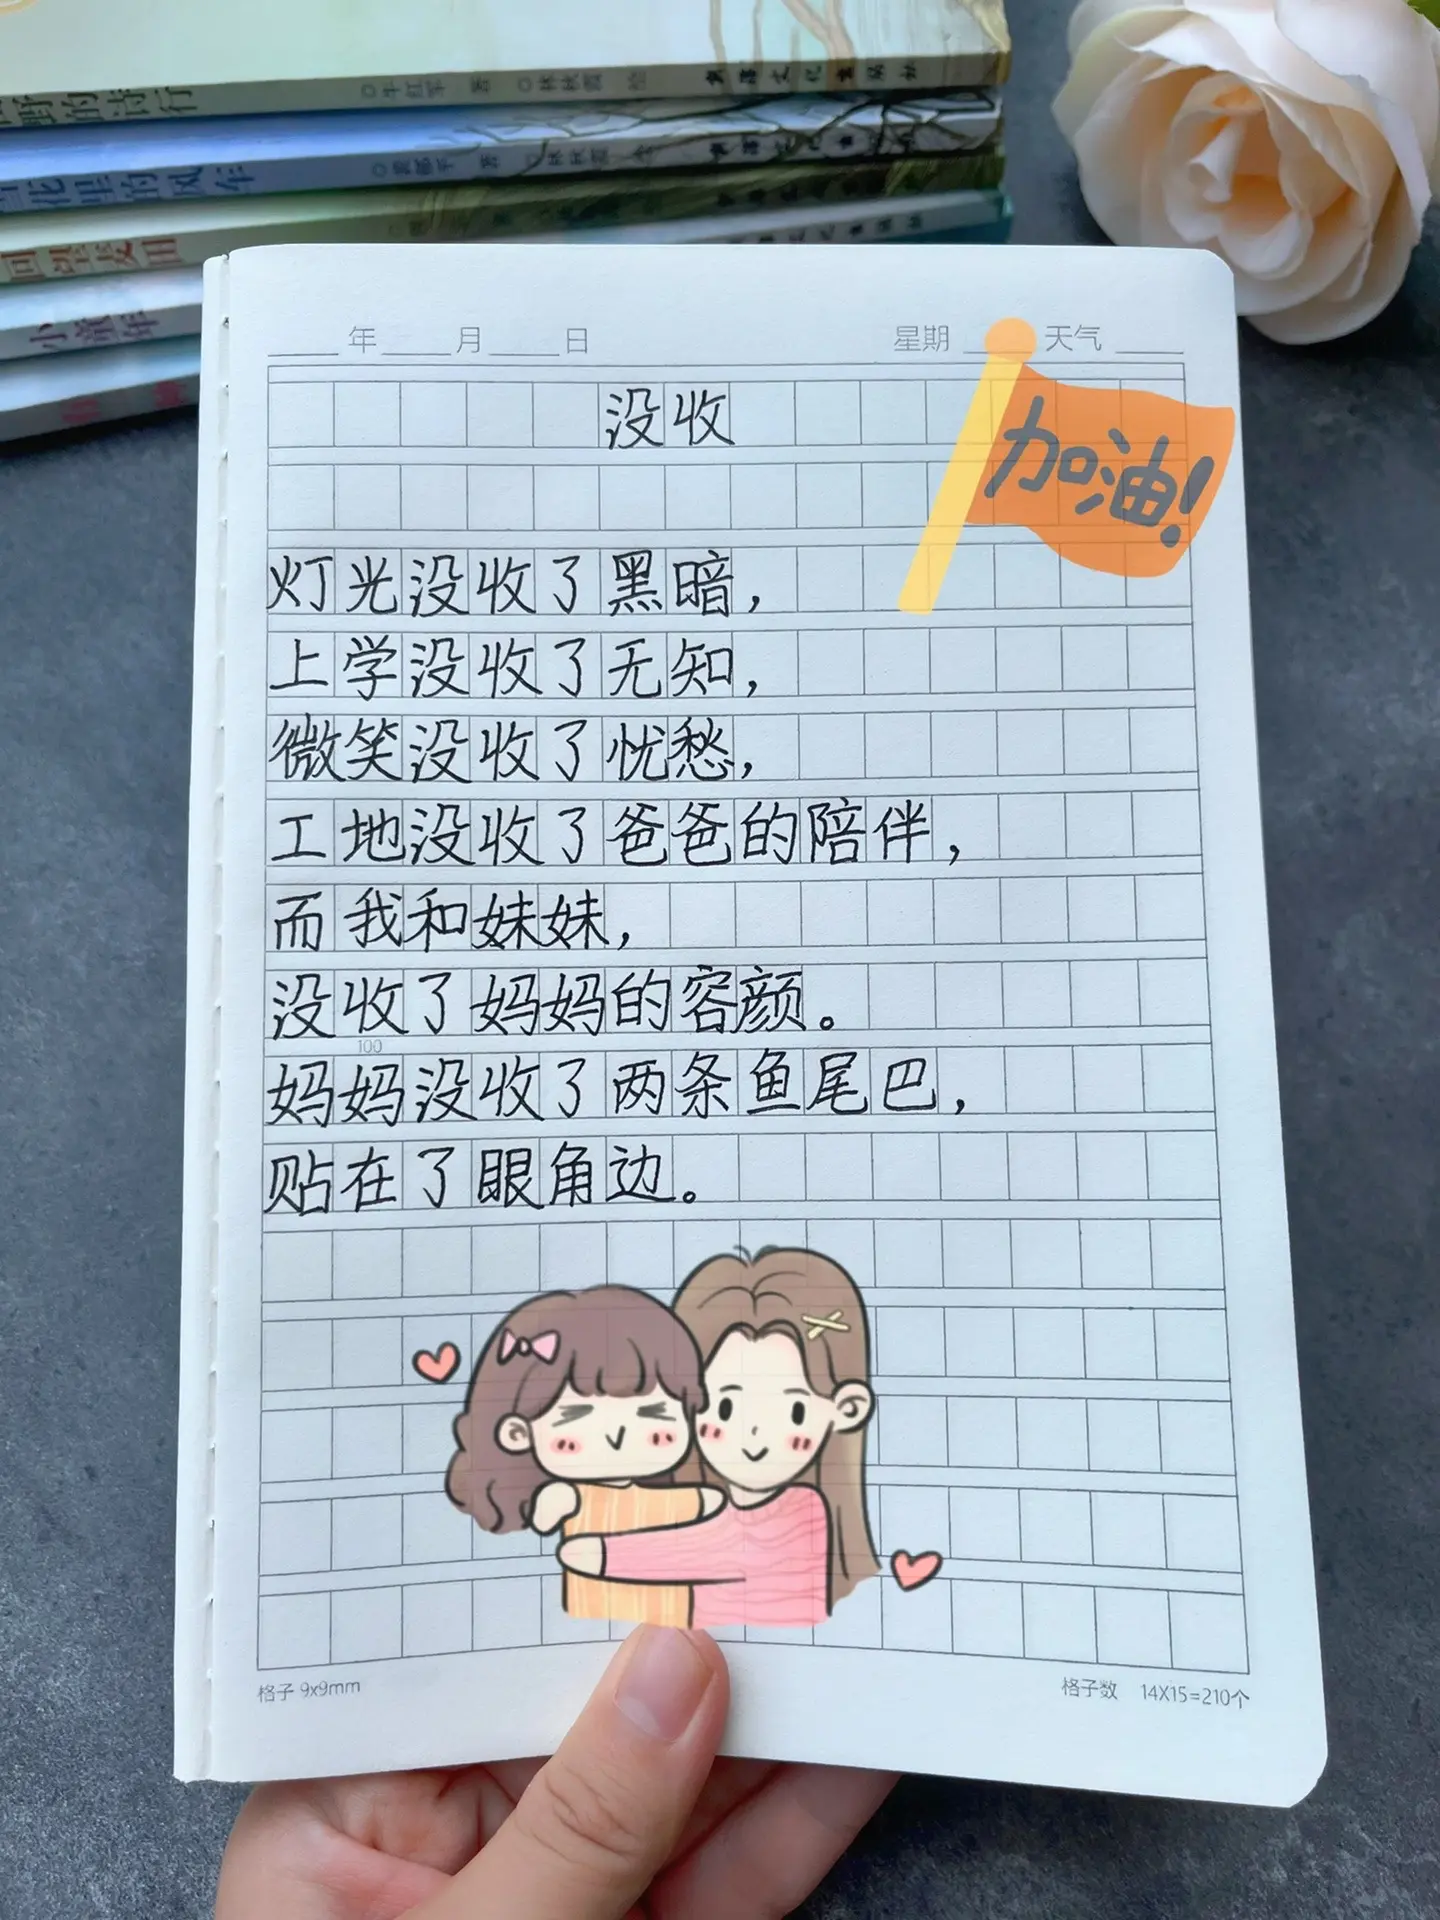 牛红军 著 林秋霞 绘
小童年
年 月 日 星期 天气
加油!
没收
灯光没收了黑暗，
上学没收了无知，
微笑没收了忧愁，
工地没收了爸爸的陪伴，
而我和妹妹，
没收了妈妈的容颜。
100
妈妈没收了两条鱼尾巴，
贴在了眼角边。
格子 9x9mm 格子数 14X15=210个